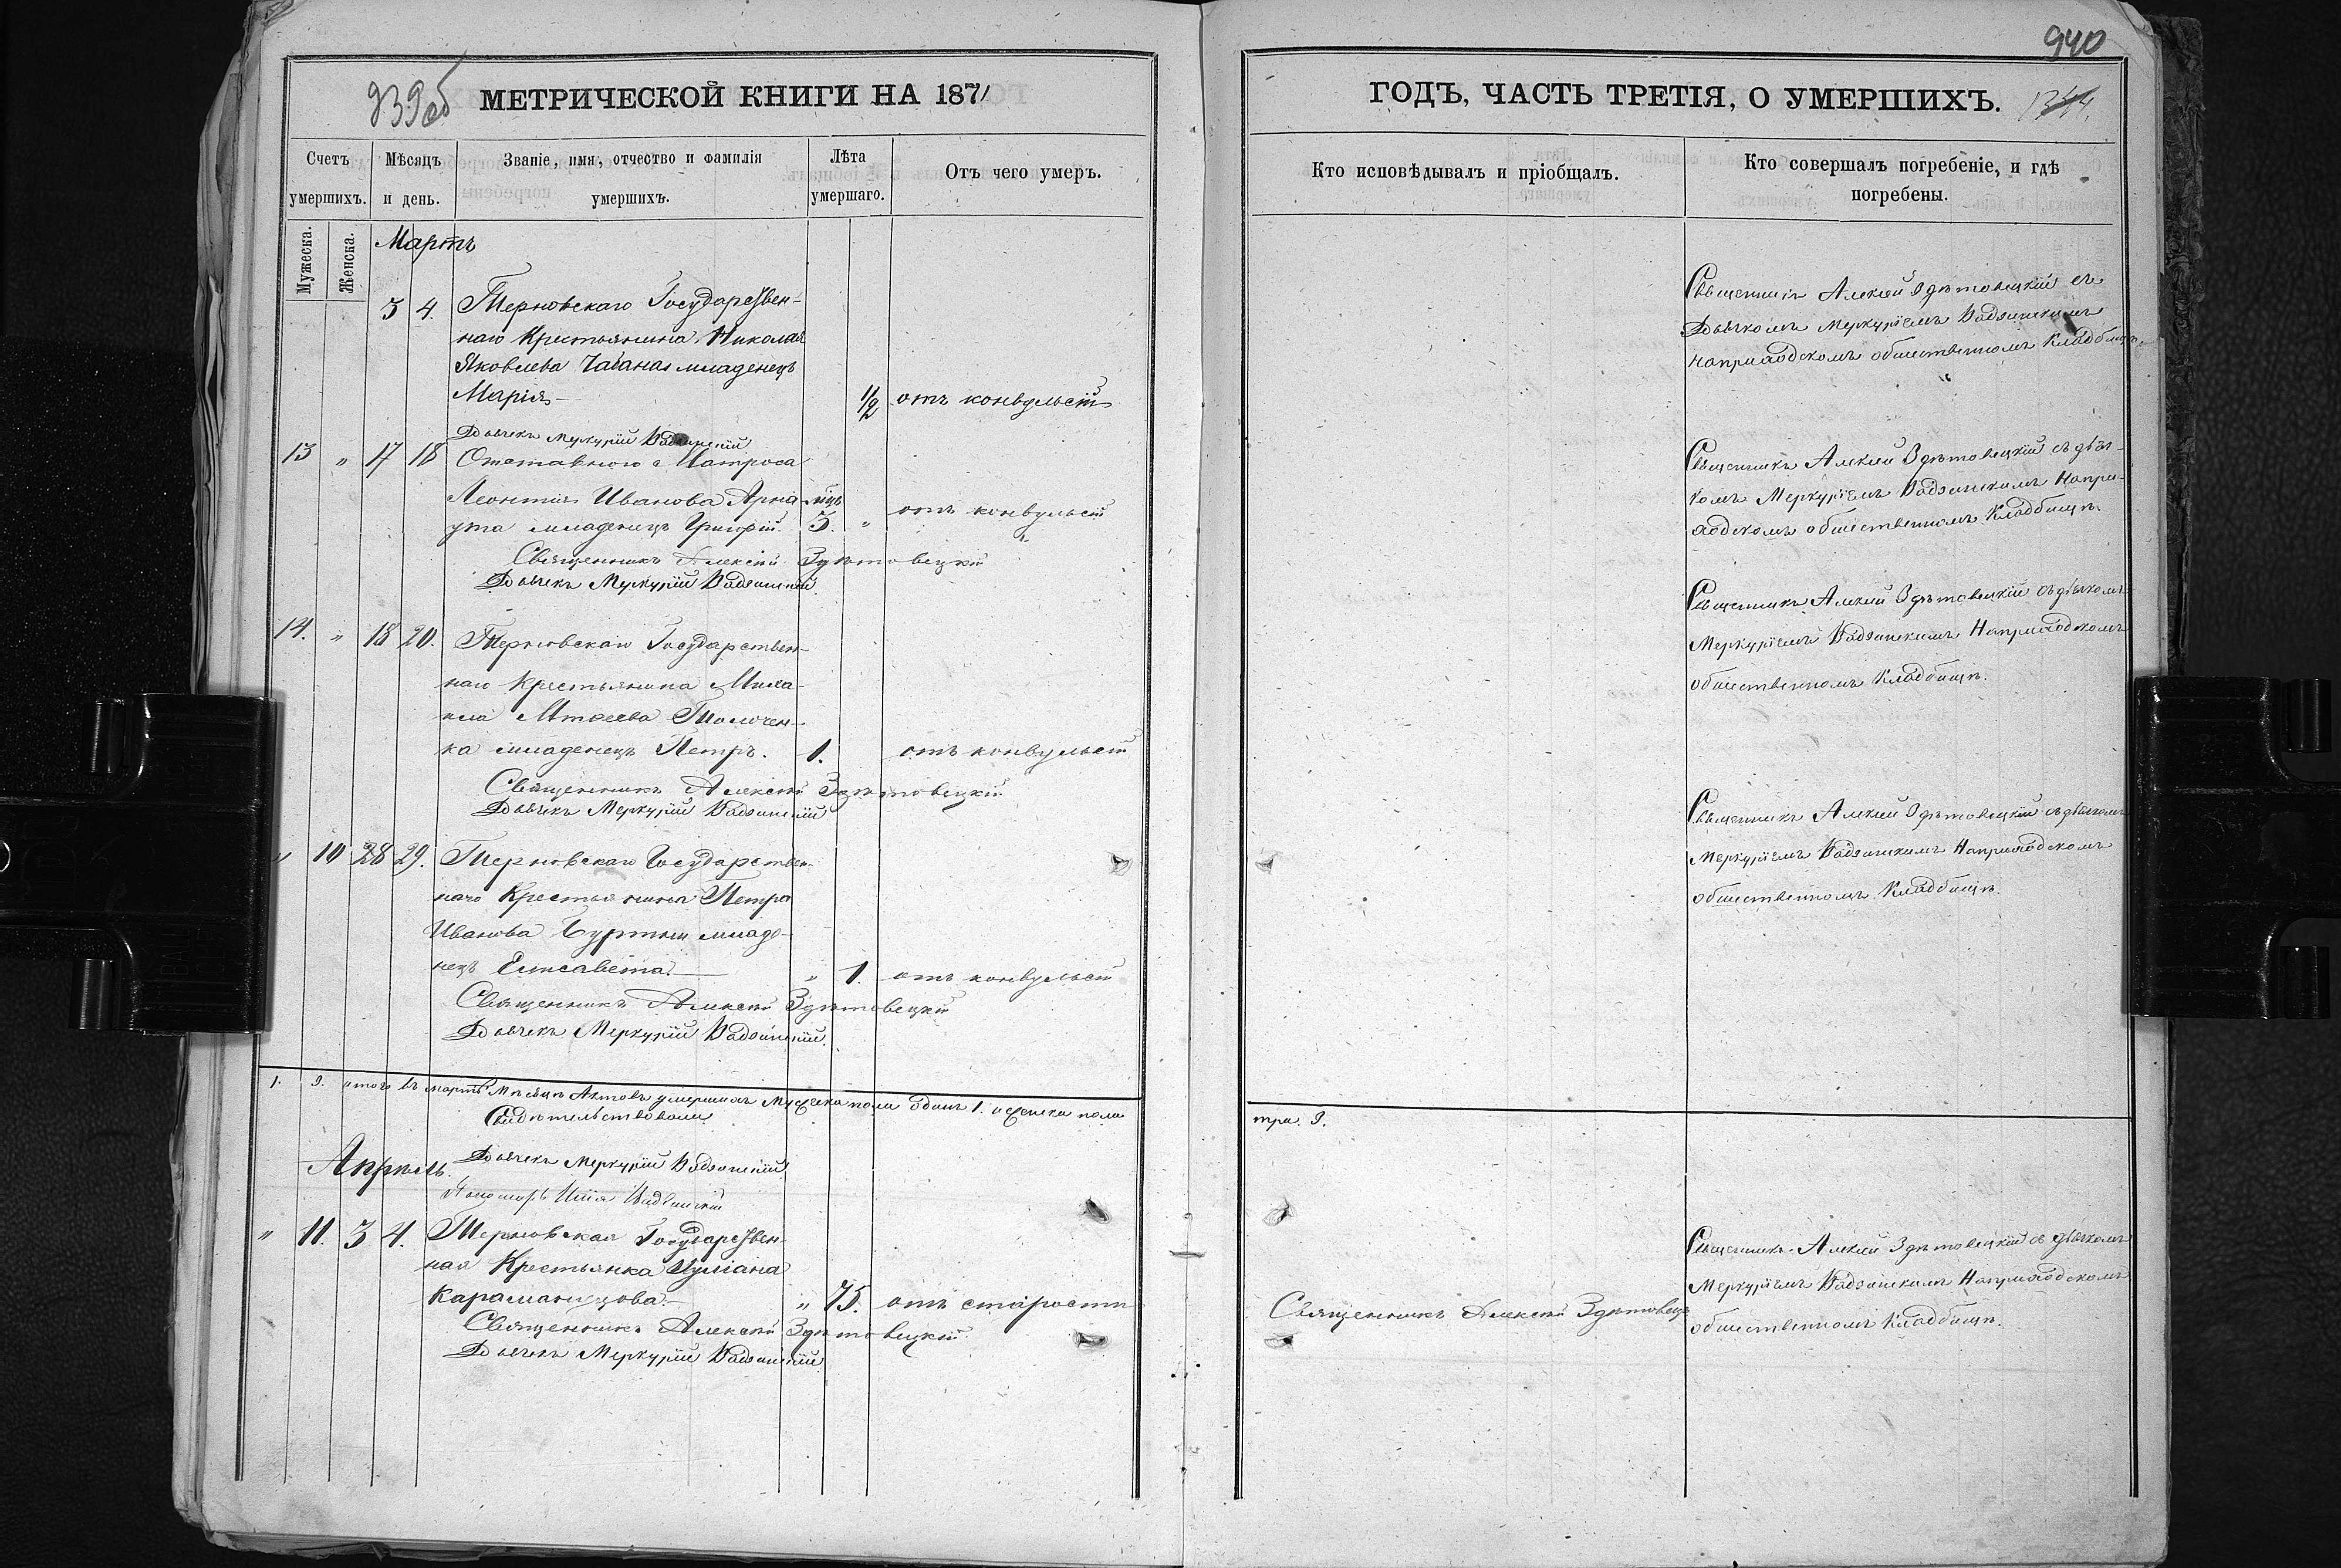 939 об
МЕТРИЧЕСКОЙ КНИГИ НА 1871
Счетъ умершихъ.
Мѣсяцъ и день.
Званіе, имя, отчество и фамилія умершихъ.
Лѣта умершаго.
Отъ чего умеръ.
Мужеска.
Женска.
Мартъ
3 4. Терновскаго Государствен-
наго Крестьянина Николая
Яковлева Чабана младенецъ
Марія — 1/2 отъ конвульсій
Дьячекъ Меркурій
13 " 17 18 Отставного Матроса
Леонтія Иванова Арна- мѣц.
ута младенецъ Григорій. 3. " отъ конвульсій
Священникъ Алексій Здѣтовецкій
Дьячекъ Меркурій Вадзинскій
14. " 18 20. Терновскаго Государствен-
наго Крестьянина Миха-
ила
ка младенецъ Петръ. 1. отъ конвульсій
Священникъ Алексій Здѣтовецкій
Дьячекъ Меркурій Вадзинскій
" 10 28 29. Терновскаго Государствен-
наго Крестьянина Петра
Иванова младе-
нецъ Елисавета. — " 1. отъ конвульсій
Священникъ Алексій Здѣтовецкій
Дьячекъ Меркурій Вадзинскій.
итого въ мартѣ мѣсяцѣ умершихъ Мужеска пола одинъ 1. и женска пола
Свидѣтельствовали
Апрѣль.
Дьячекъ Меркурій Вадзинскій
Пономарь Илія Вадзинскій
" 11. 3 4. Терновская Государствен-
ная Крестьянка Иуліана
Караманцова. — " 75. отъ старости
Священникъ Алексій Здѣтовецкій
Дьячекъ Меркурій Вадзинскій.
940
ГОДЪ, ЧАСТЬ ТРЕТІЯ, О УМЕРШИХЪ.
Кто исповѣдывалъ и пріобщалъ.
Кто совершалъ погребеніе, и гдѣ погребены.
Священникъ Алексій Здѣтовецкій съ
Дьячкомъ Меркуріемъ Вадзинскимъ
на приходскомъ общественномъ Кладбищѣ.
Священникъ Алексій Здѣтовецкій съ дьяч-
комъ Меркуріемъ Вадзинскимъ На при-
ходскомъ общественномъ Кладбищѣ.
Священникъ Алексій Здѣтовецкій съ дьячкомъ
Меркуріемъ Вадзинскимъ На приходскомъ
общественномъ Кладбищѣ.
Священникъ Алексій Здѣтовецкій съ дьячкомъ
Меркуріемъ Вадзинскимъ На приходскомъ
общественномъ Кладбищѣ.
три.
Священникъ Алексій Здѣтовецк
Священникъ Алексій Здѣтовецкій съ дьячкомъ
Меркуріемъ Вадзинскимъ На приходскомъ
общественномъ Кладбищѣ.